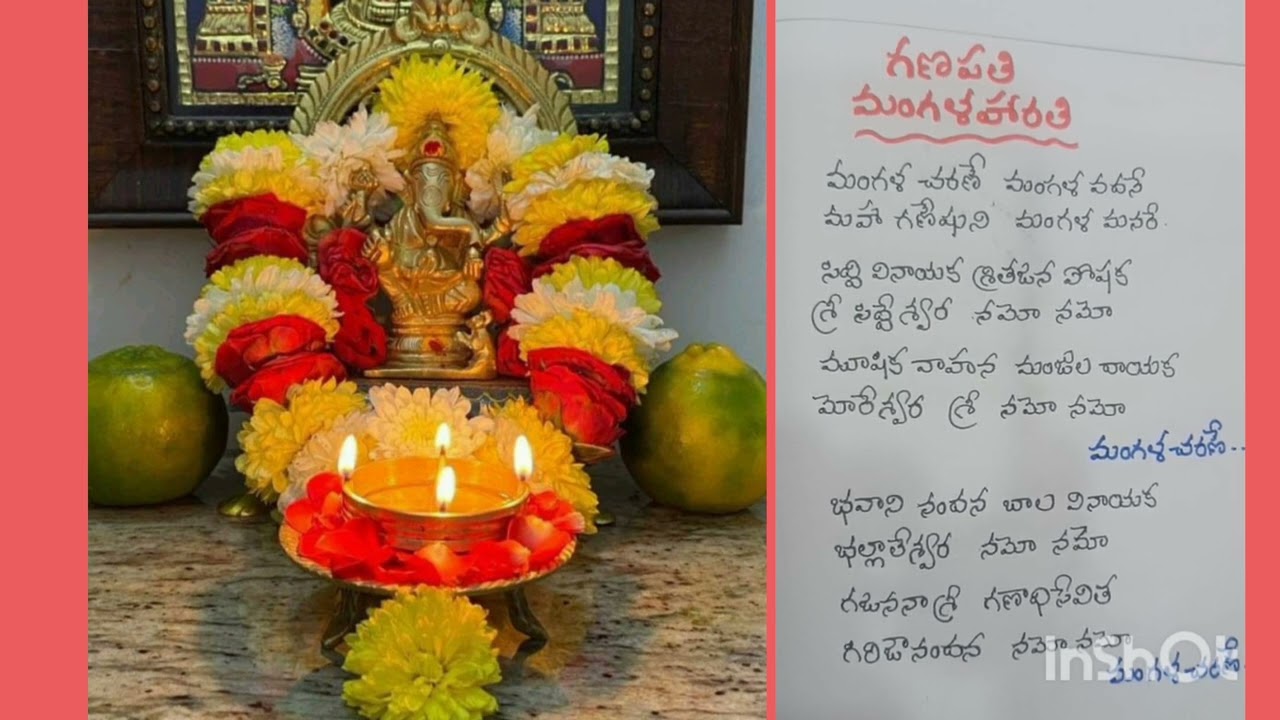 గణపతి
మంగళహారతి
మంగళ చరణే మంగళ వదనే
మహా గణేషుని మంగళ మనరే.
సిద్ది వినాయక శ్రితజన పోషక
శ్రీ సిద్దేశ్వర నమో నమో
మూషిక వాహన మంజుల
మోరేశ్వర శ్రీ నమో నమో
మంగళ చరణే..
భవాని నందన బాల వినాయక
భల్లాలేశ్వర నమో నమో
గజాననా శ్రీ గణాధిసేవిత
గిరిజానందన నమో నమో
మంగళ చరణే.
InShOt